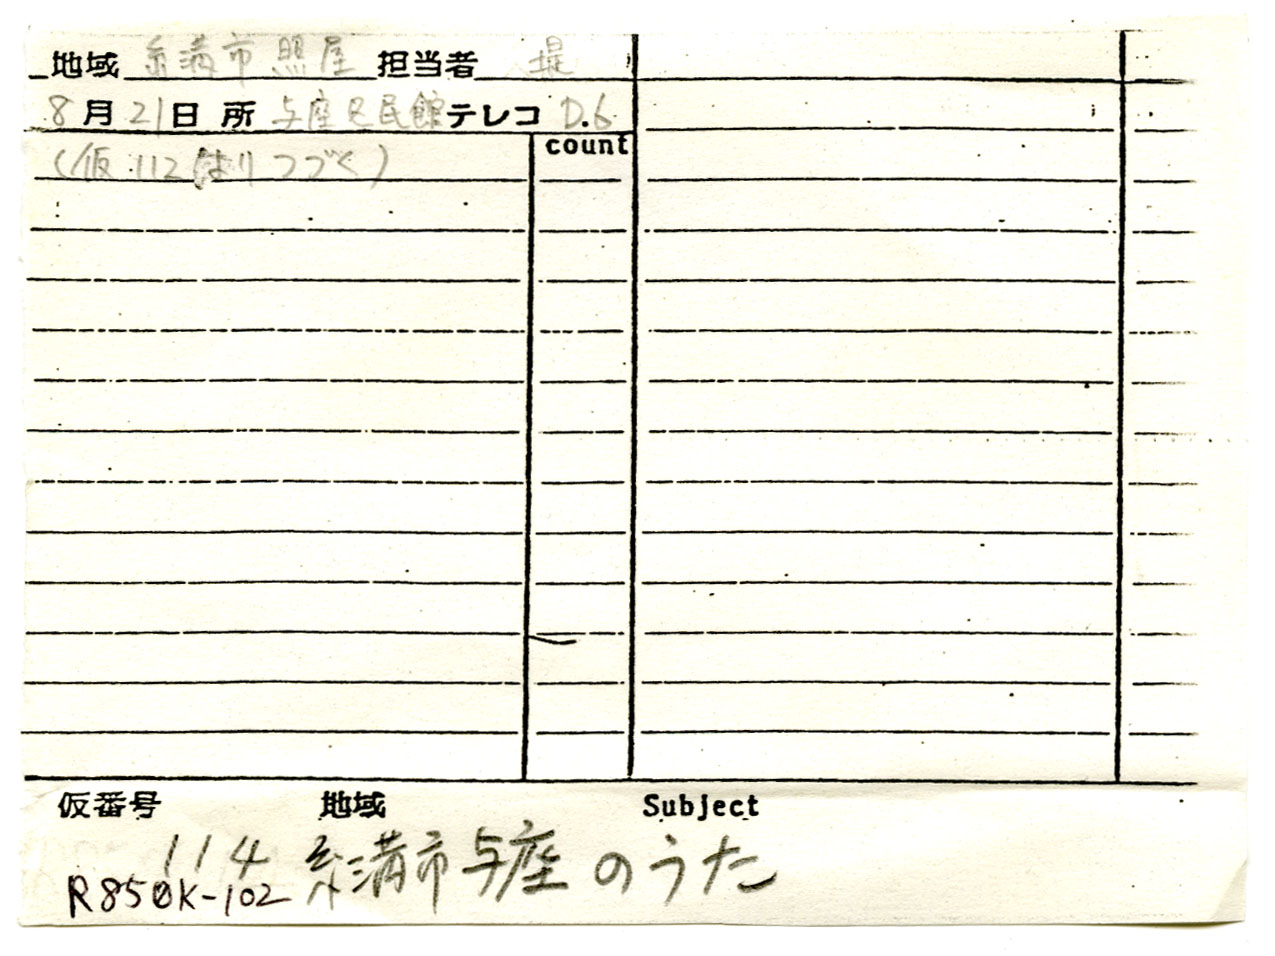 地域 糸満市照屋 担当者 堤
8月21日 所 与座区民館 テレコ D.6
count
(仮 112 よりつづく)
仮番号 地域 Subject
114 糸満市与座のうた
R850K-102